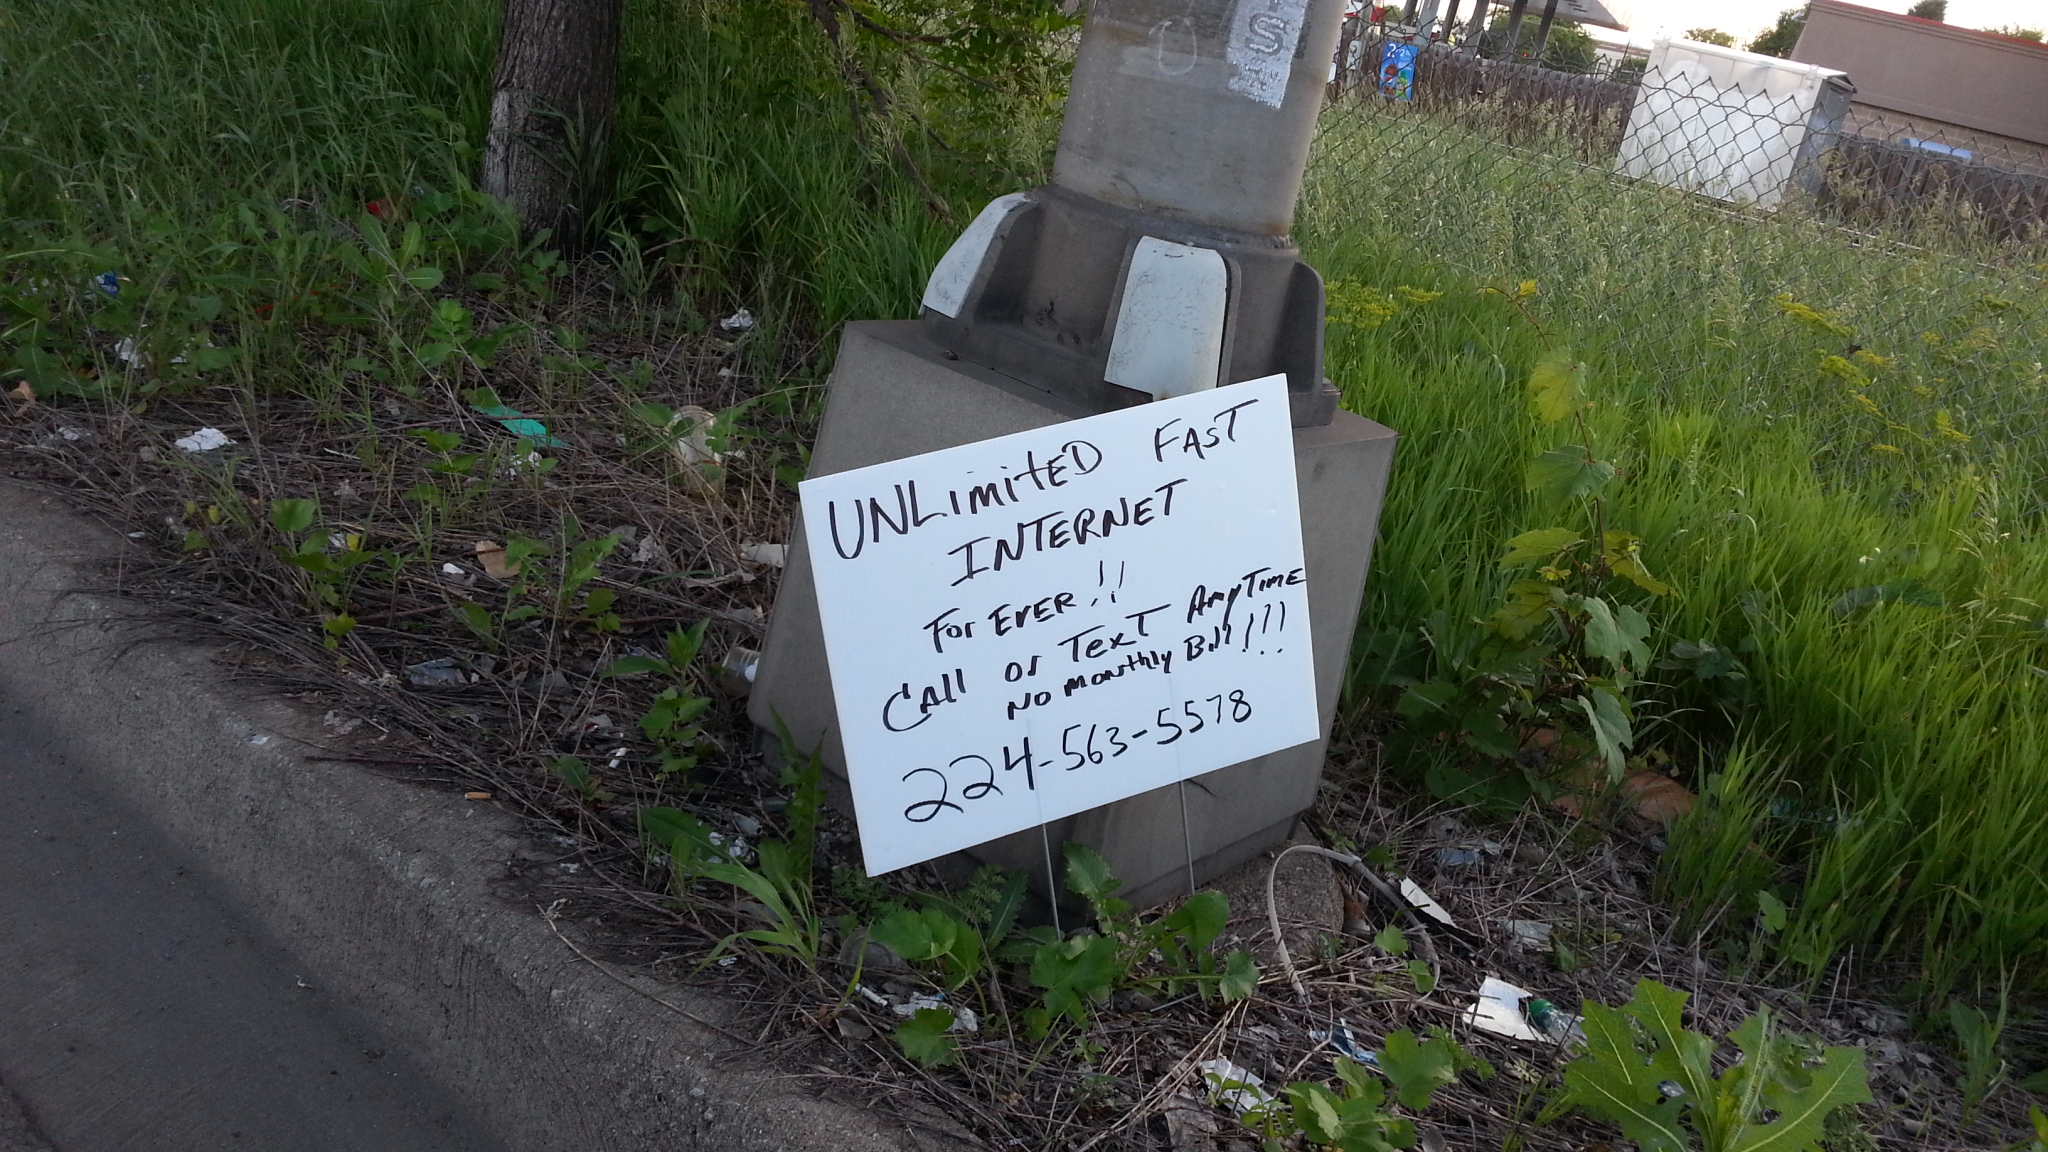 UNLimitED FAST
INTERNET
For EVER!!
CAll or TexT AnyTIME
NO monthly Bill!!!
224-563-5578